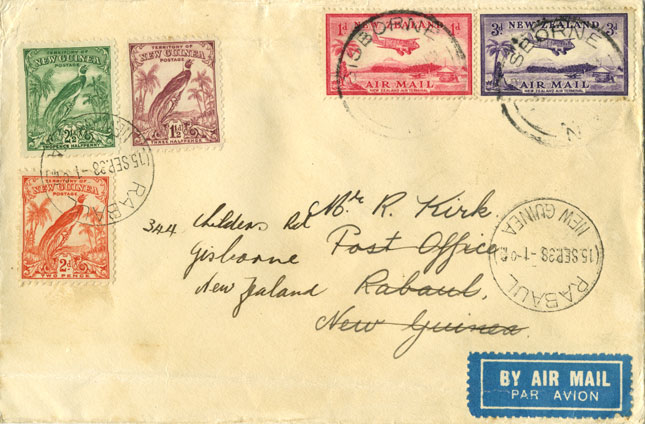 TERRITORY OF
NEW GUINEA
POSTAGE
2½
TERRITORY OF
NEW GUINEA
POSTAGE
1½
THREE HALFPENCE
TERRITORY OF
NEW GUINEA
POSTAGE
2D
TWO PENCE
RABA
15 SEP.38
1d NEW ZEALAND 1d
AIR MAIL
NEW ZEALAND AIR TERMINAL
GISBORNE
3d NEW ZEALAND 3d
AIR MAIL
NEW ZEALAND AIR TERMINAL
SBORNE
N
Mr R. Kirk
Post Office
Rabaul,
New Guinea
344 Childers Rd
Gisborne
New Zealand
RABAUL
15 SEP.38
NEW GUINEA
BY AIR MAIL
PAR AVION